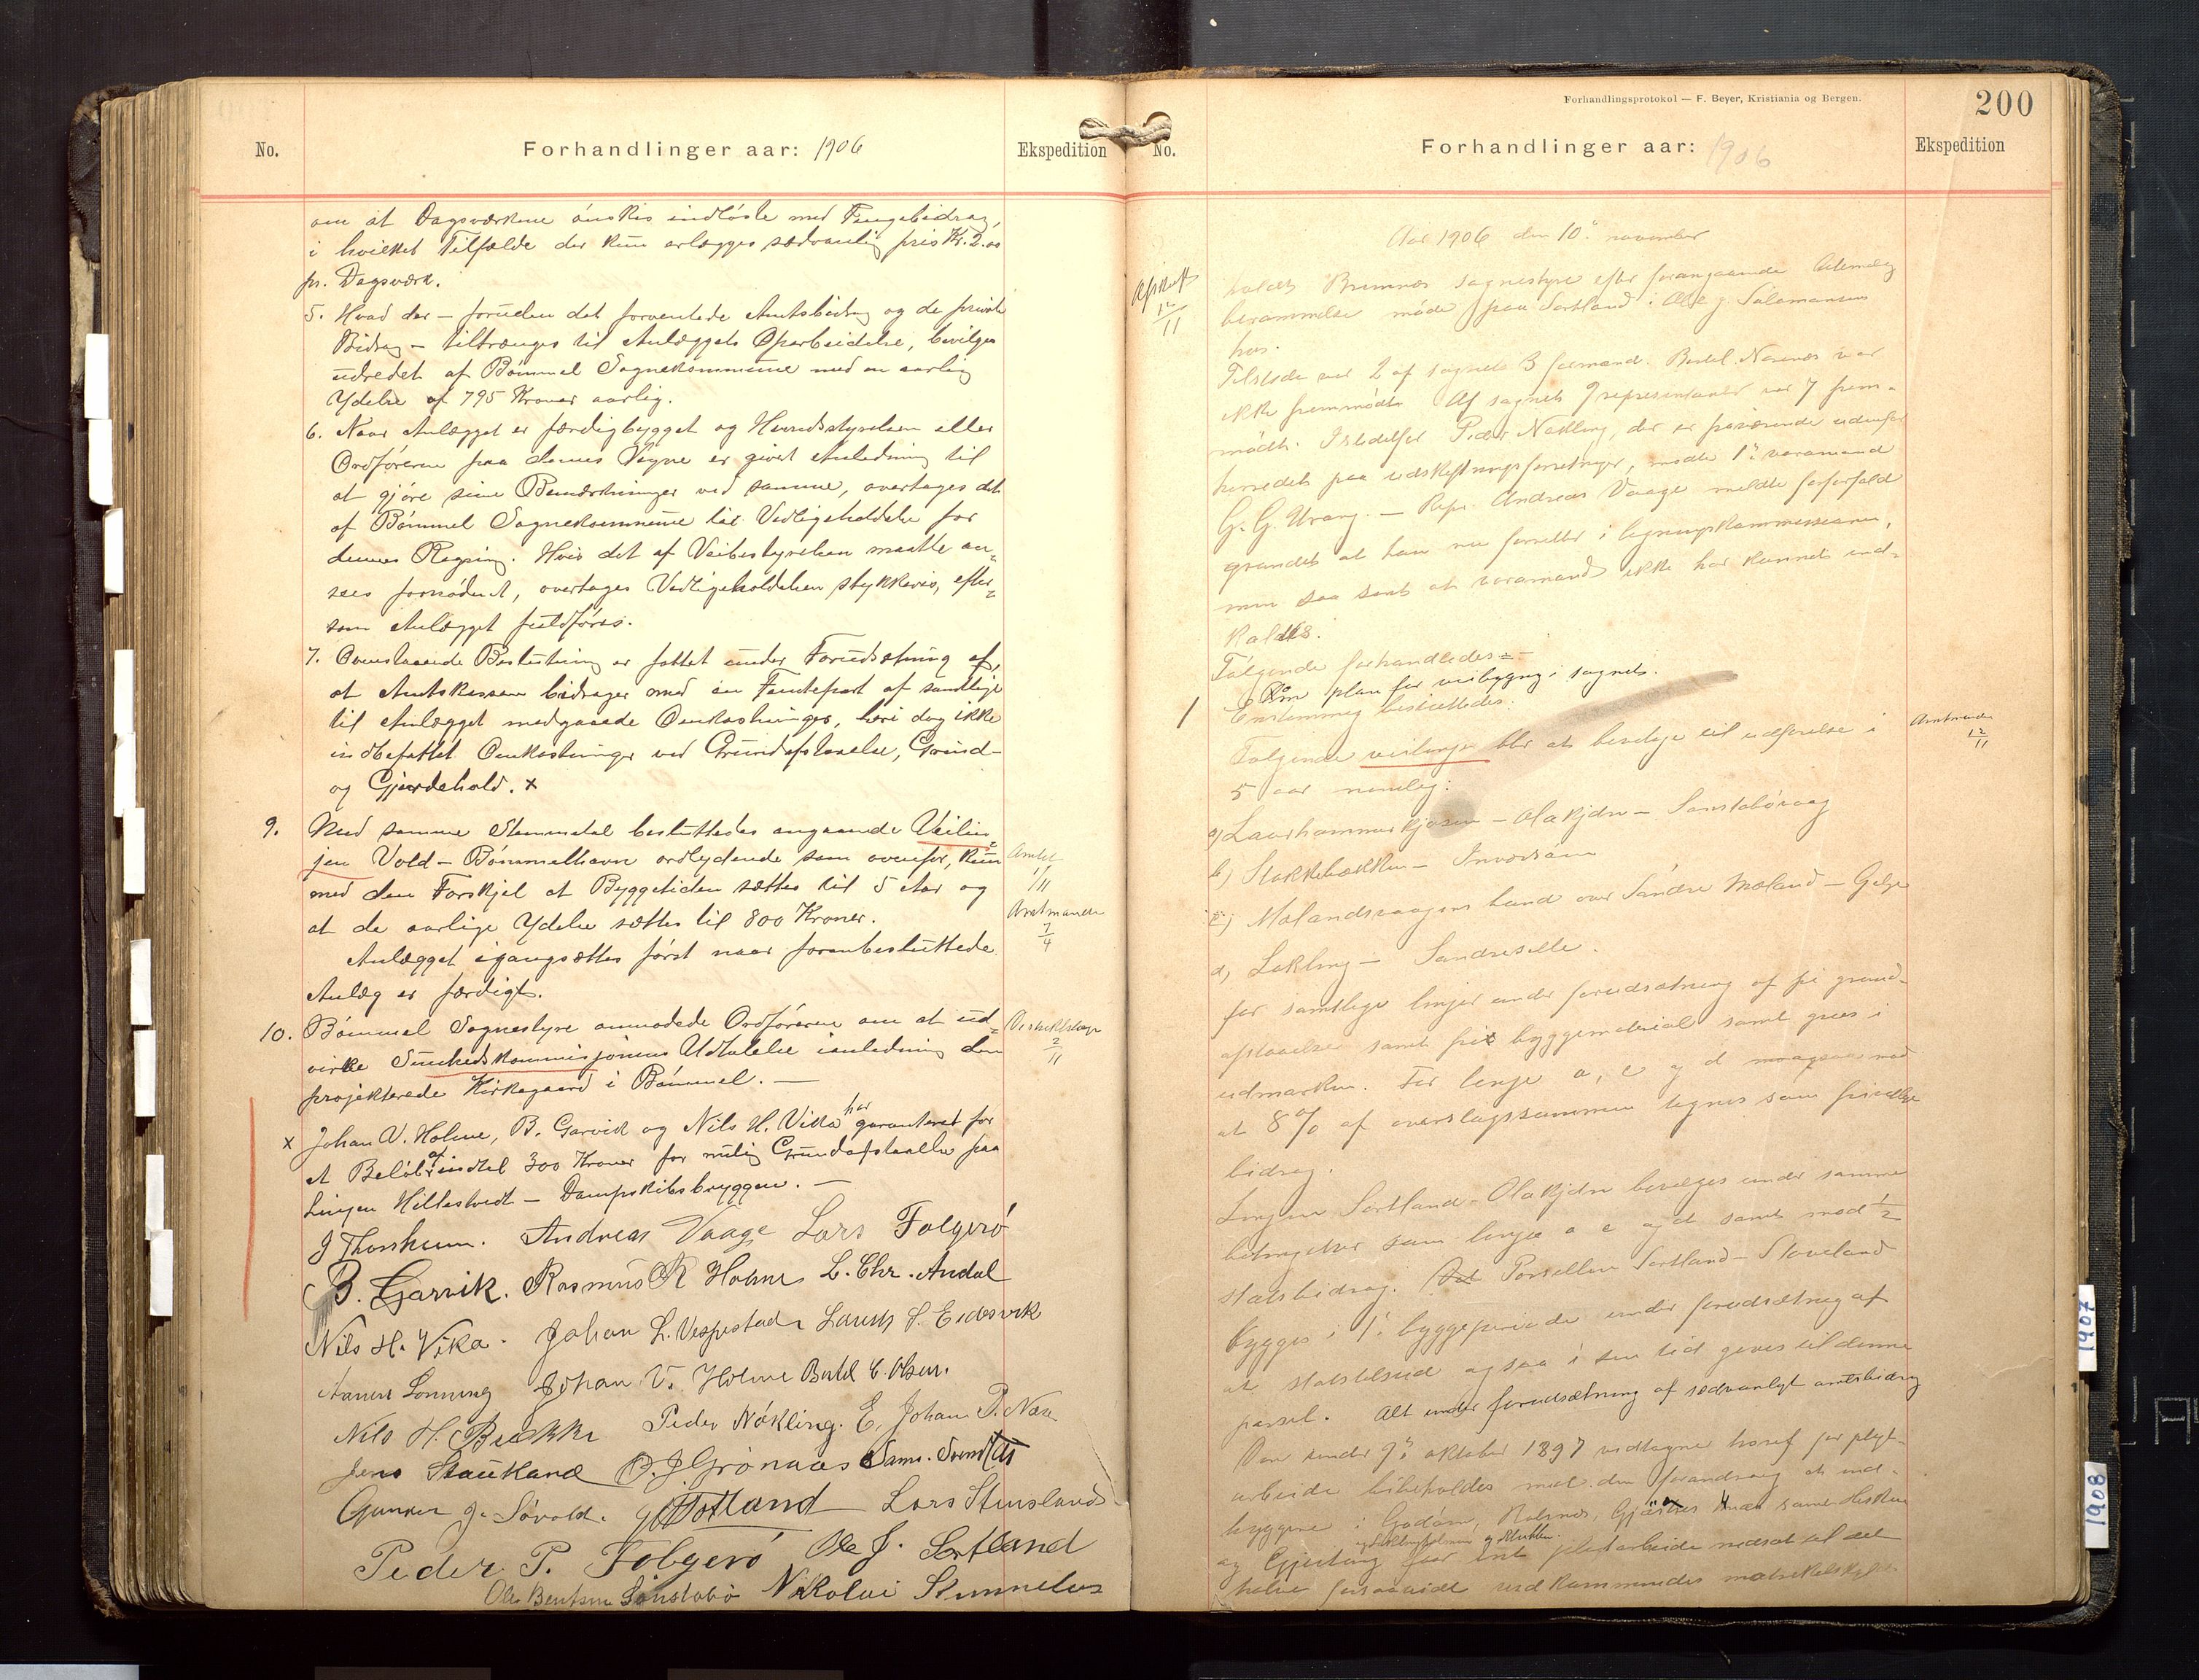 No.
Forhandlinger aar: 1906
Ekspedition
om at Dagsværkene ønskes indløste med Pengebidrag,
i hvilket Tilfælde der kun erlægges sædvanlig pris Kr. 2.00
pr. Dagsværk.
5. Hvad der – foruden det forventede Amtsbidrag og de private
Bidrag – tiltrænges til Anlæggets Oparbeidelse, bevilges
udredet af Bømmel Sognekommune med en aarlig
Ydelse af 795 Kroner aarlig.
6. Naar Anlægget er færdigbygget og Herredsstyrelsen eller
Ordføreren paa dennes Vegne er givet Anledning til
at gjøre sine Bemærkninger ved samme, overtages det
af Bømmel Sognekommune til Vedligeholdelse for
dennes Regning. Hvis det af Veibestyrelsen maatte an-
sees fornødent, overtages Vedligeholdelsen stykkevis, efter-
som Anlægget fuldføres.
7. Ovenstaaende Beslutning er fattet under Forudsætning af,
at Amtskassen bidrager med en Femtepart af samtlige
til Anlægget medgaaede Omkostninger, heri dog ikke
indbefattet Omkostninger ved Grundafstaaelse, Grind-
og Gjerdehold. x
9. Med samme Stemmetal besluttedes angaaende Veilin-
jen Vold – Bømmelhavn ordlydende som ovenfor, kun
med den Forskjel at Byggetiden sættes til 5 Aar og
at de aarlige Ydelse sættes til 800 Kroner.
Anlægget igangsættes først naar foranbesluttede
Anlæg er færdigt.
Amtet
1/11
Amtmanden
7/4
10. Bømmel Sognestyre anmodede Ordføreren om at ud-
virke Sundhedskommisjonens Udtalelse i anledning den
projekterede Kirkegaard i Bømmel. —
2/11
x Johan V. Holme, B. Garvik og Nils H. Vika har garanteret for
et Beløb af indtil 300 Kroner for mulig Grundafstaaelse paa
Linjen Hillestvedt – Dampskibsbryggen. —
J Thorsheim. Andreas Vaage Lars Folgerø
B. Garvik. Rasmus R Holme L. Chr. Andal
Nils H. Vika. Johan L. Vespestad Laurits S. Eidesvik
Lønning Johan V. Holme Bertel E. Olsen.
Nils H. Bække Peder Nøkling. E. Johan P. Næs
Jens Stautland O. J. Grønaas Sam. Svendsen
Gunnar J. Søvold. Hotland Lars Stensland
Peder P. Folgerø Ole J. Sortland
Ole Bentsen Sønstabø Nikolai Steinnelus
Forhandlingsprotokol — F. Beyer, Kristiania og Bergen.
200
No.
Forhandlinger aar: 1906
Ekspedition
Aar 1906 den 10. november
Afskrift
12/11
holdtes Bremnes sognestyre efter forangaaende lovmæssig
berammelse møde paa Sortland i Ole J. Salamonsens
hus.
Tilstede var 2 af sognets 3 formænd. Bertel Næsnes var
ikke fremmødt. Af sognets 9 repræsentanter var 7 frem-
mødt. Istedetfor Peder Nøkling, der er fraværende udenfor
herredet paa udskiftningsforretninger, mødte 1. varamand
G. G. Urang. — Repr. Andreas Vaage meldte forfald
grundet at han nu forretter i ligningskommissionen,
men saa sent at varamand ikke har kunnet ind-
kaldes.
Følgende forhandledes: —
1 Om plan for veibygning i sognet.
Enstemmig besluttedes:
Følgende veilinjer blir at besørge til udførelse i
5 aar nemlig:
Amtmanden
12/11
a) Laurhammerkjosen – Olakjdn – Sønstabøvaag
b) Stokkebækken – Innværøen
c) Mælandsvaagens bund over Søndre Mæland – Gelje
d) Løkling – Søndreselle.
for samtlige linjer under forudsætning af fri grund-
afstaaelse samt frit byggemateriale samt grus i
udmarken. For linje a, c og d med
at 8 % af overslagssummen tegnes som private
bidrag.
Linjen Sortland – Olakjdn bevilges under samme
betingelser som linje a c og d samt med 1/2
statsbidrag. Parsellen Sortland – Stoveland
bygges i 1. byggeperiode under forudsætning af
at statstilskud ogsaa i sin tid gives til denne
parsel. Alt under forudsætning af sædvanligt amtsbidrag
Den under 9. oktober 1897 vedtagne tarif for pligt-
arbeide bibeholdes med den forandring at ind-
byggerne i Goddøn, Kolsnes, samt Hisken
og Gjeitung faar sit pligtarbeide nedsat til det
halve forsaavidt vedkommendes matrikelskyld
1907
1908